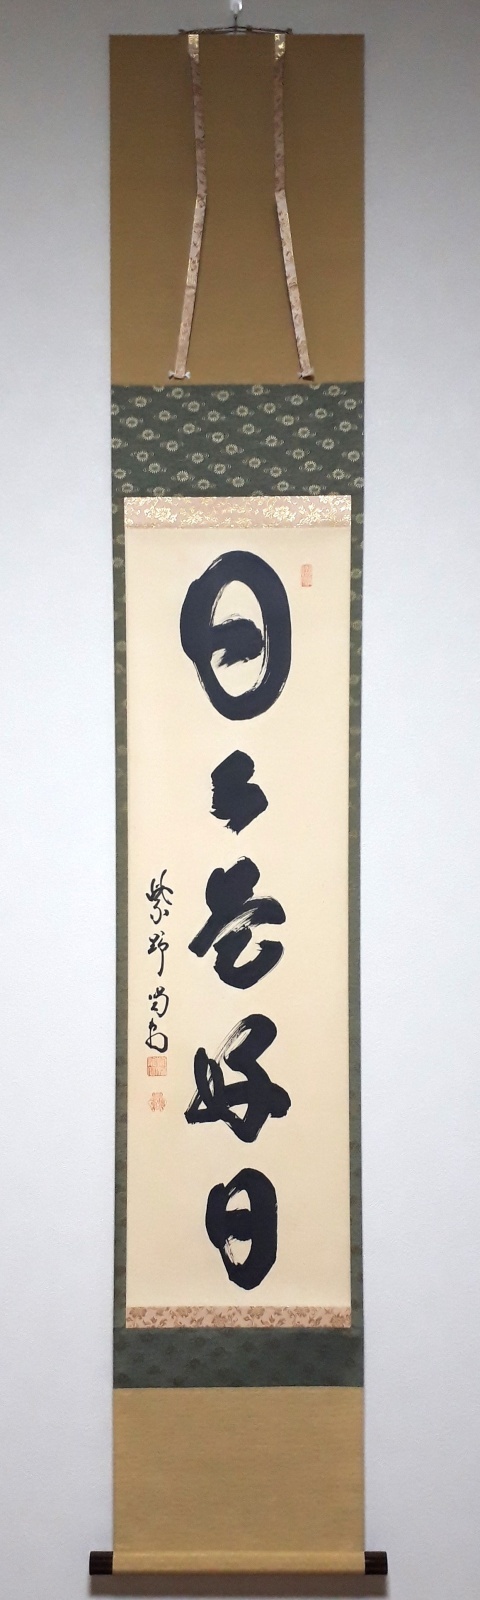 日々是好日
紫野 尚道